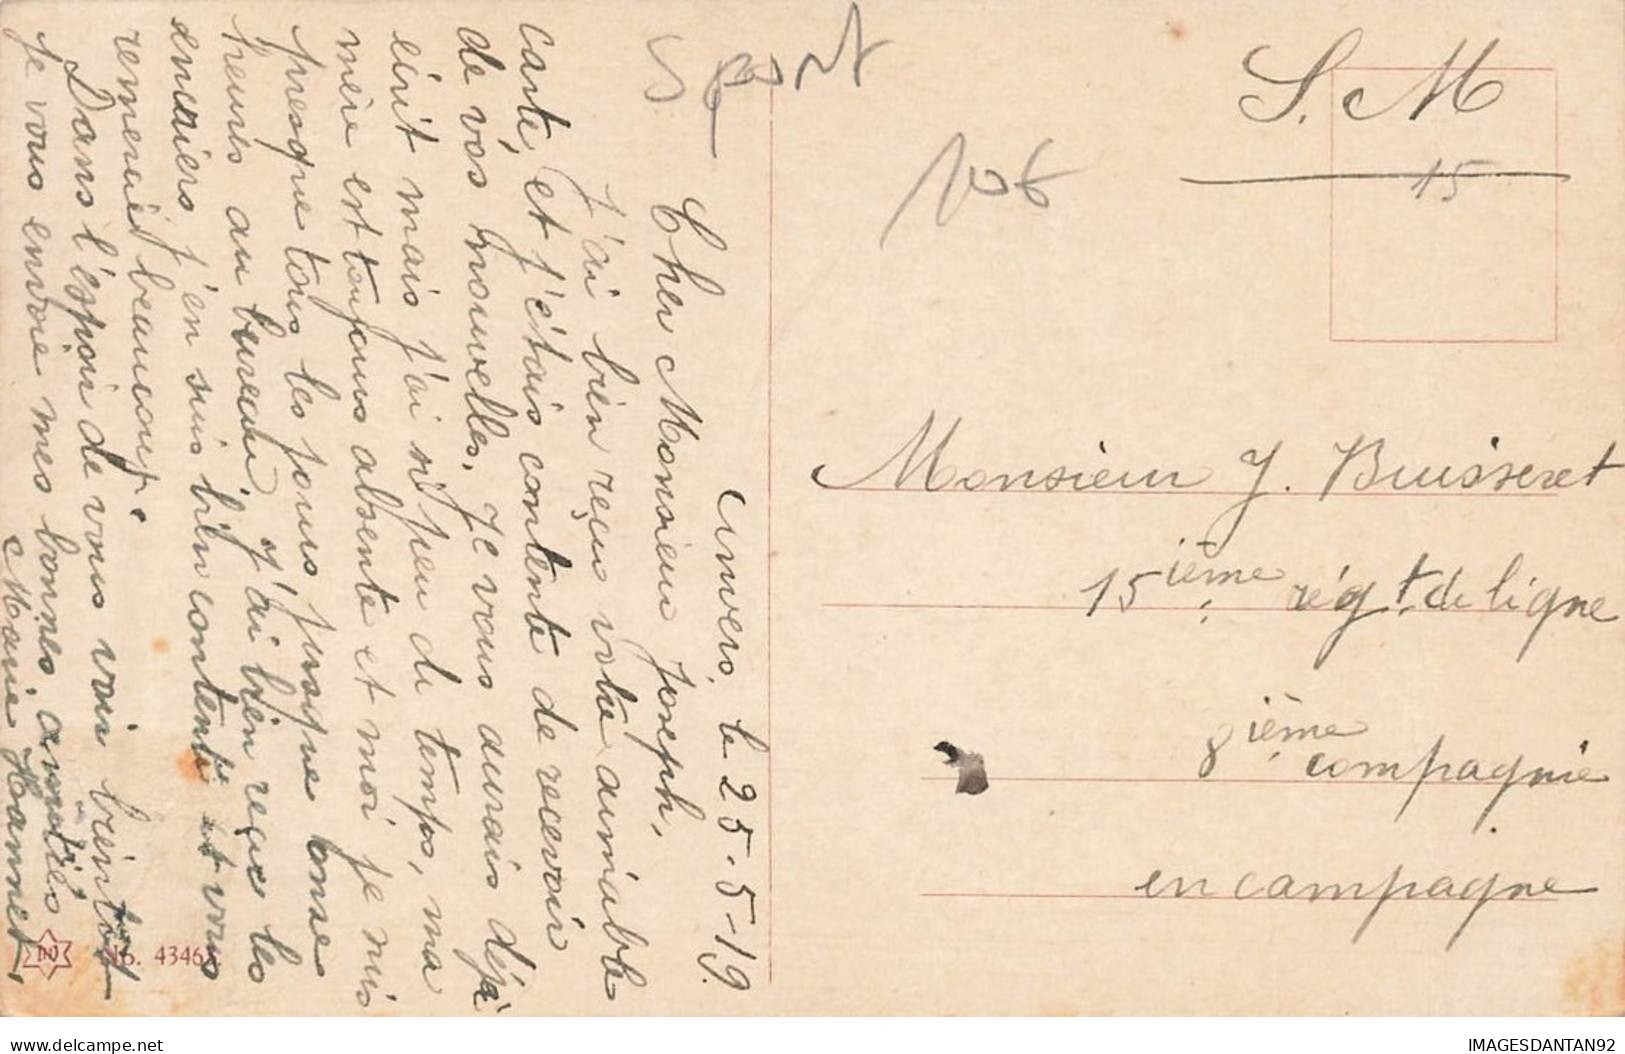 sport
106
S. M
15
Anvers, le 25-5-19.
Cher Monsieur Joseph,
J'ai bien reçu votre aimable
carte, et j'étais contente de recevoir
de vos nouvelles. Je vous aurais déjà
écrit mais j'ai si peu de temps, ma
mère est toujours absente et moi je suis
presque tous les jours jusque onse
heures au bureau, j'ai bien reçue les
encriers j'en suis bien contente et vous
remercie beaucoup.
Dans l'espoir de vous voir bientôt
je vous envoie mes bonnes amitiés
Marie Hammet,
Monsieur J. Buisseret
15ième régt. de ligne
8ième compagnie
en campagne
No. 4346
IMAGESDANTAN92
delcampe.net